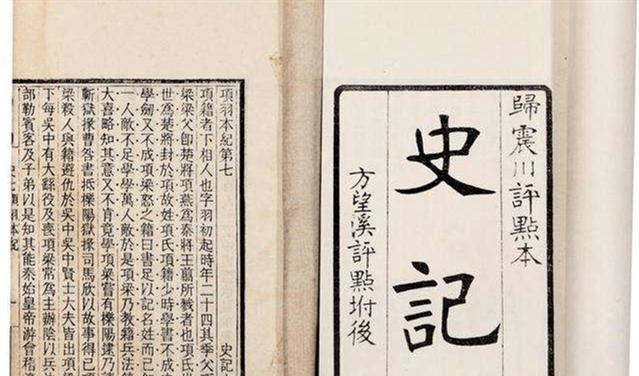 歸震川評點本
史記
方望溪評點坿後
項羽本紀第七　史記
項籍者下相人也字羽初起時年二十四其季父
梁梁父卽楚將項燕爲秦將王翦所戮者也項氏
世爲楚將封於項故姓項氏項籍少時學書不成
學劍又不成項梁怒之籍曰書足以記名姓而已
一人敵不足學學萬人敵於是項梁乃教籍兵法
大喜略知其意又不肯竟學項梁嘗有櫟陽逮乃
蘄獄掾曹咎書抵櫟陽獄掾司馬欣以故事得已
梁殺人與籍避仇於吳中吳中賢士大夫皆出項
下每吳中有大繇役及喪項梁常爲主辦陰以兵
部勒賓客及子弟以是知其能秦始皇帝游會稽